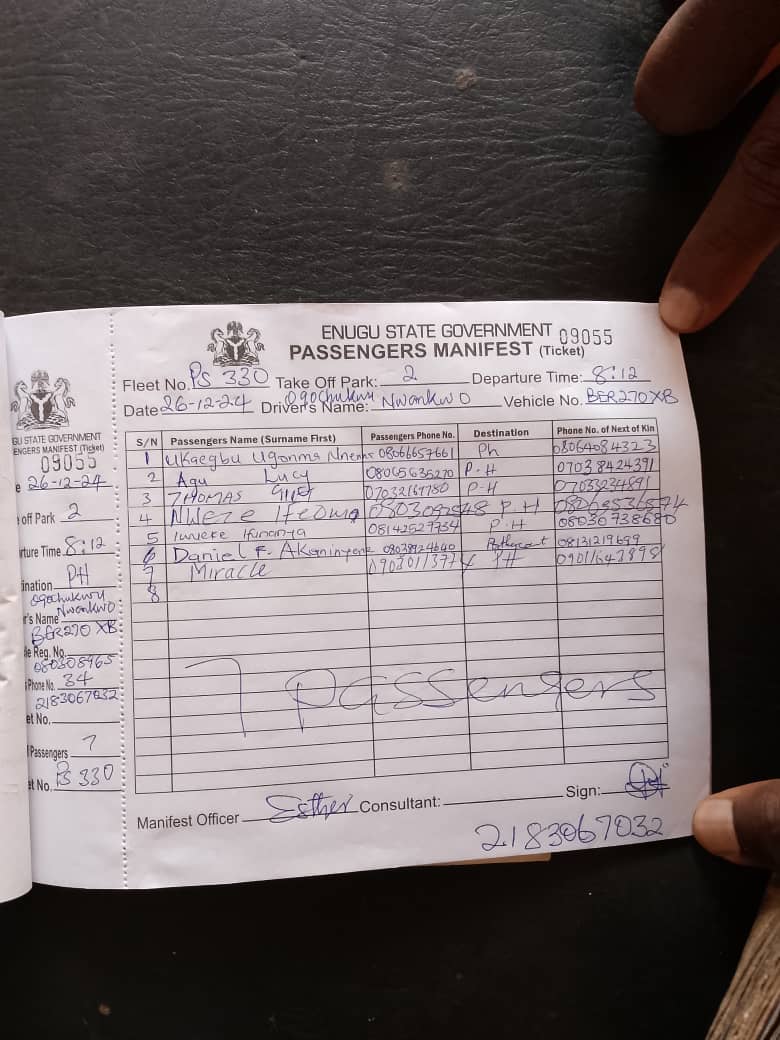 ENUGU STATE GOVERNMENT 09055
PASSENGERS MANIFEST (Ticket)
Fleet No. PS 330 Take Off Park: 2 Departure Time: 8:12
Date 26-12-24 Driver's Name: Ogochukwu Nwankwo Vehicle No. BER270XB
S/N Passengers Name (Surname First) Passengers Phone No. Destination Phone No. of Next of Kin
1 Ukaegbu Ugonma 08066657661 Ph 08064084323
2 Agu Lucy 08065635270 P-H 07038424391
3 THOMAS Gift 07032161780 P-H 07033234891
4 NWEZE Ifeoma P.H
5 Ifunanya 08142527734 P-H 08030738680
6 Daniel F. Akaninyene 08038924640 08131219699
7 Miracle PH 09011643898
8
7 Passengers
Manifest Officer Esther Consultant: Sign:
2183067032
GU STATE GOVERNMENT
ENGERS MANIFEST (Ticket)
09055
e 26-12-24
off Park 2
rture Time 8:12
ination PH
Ogochukwu
r's Name Nwankwo
BER270 XB
le Reg. No.
080308965
Phone No. 34
2183067032
et No.
Passengers 7
et No. PS 330